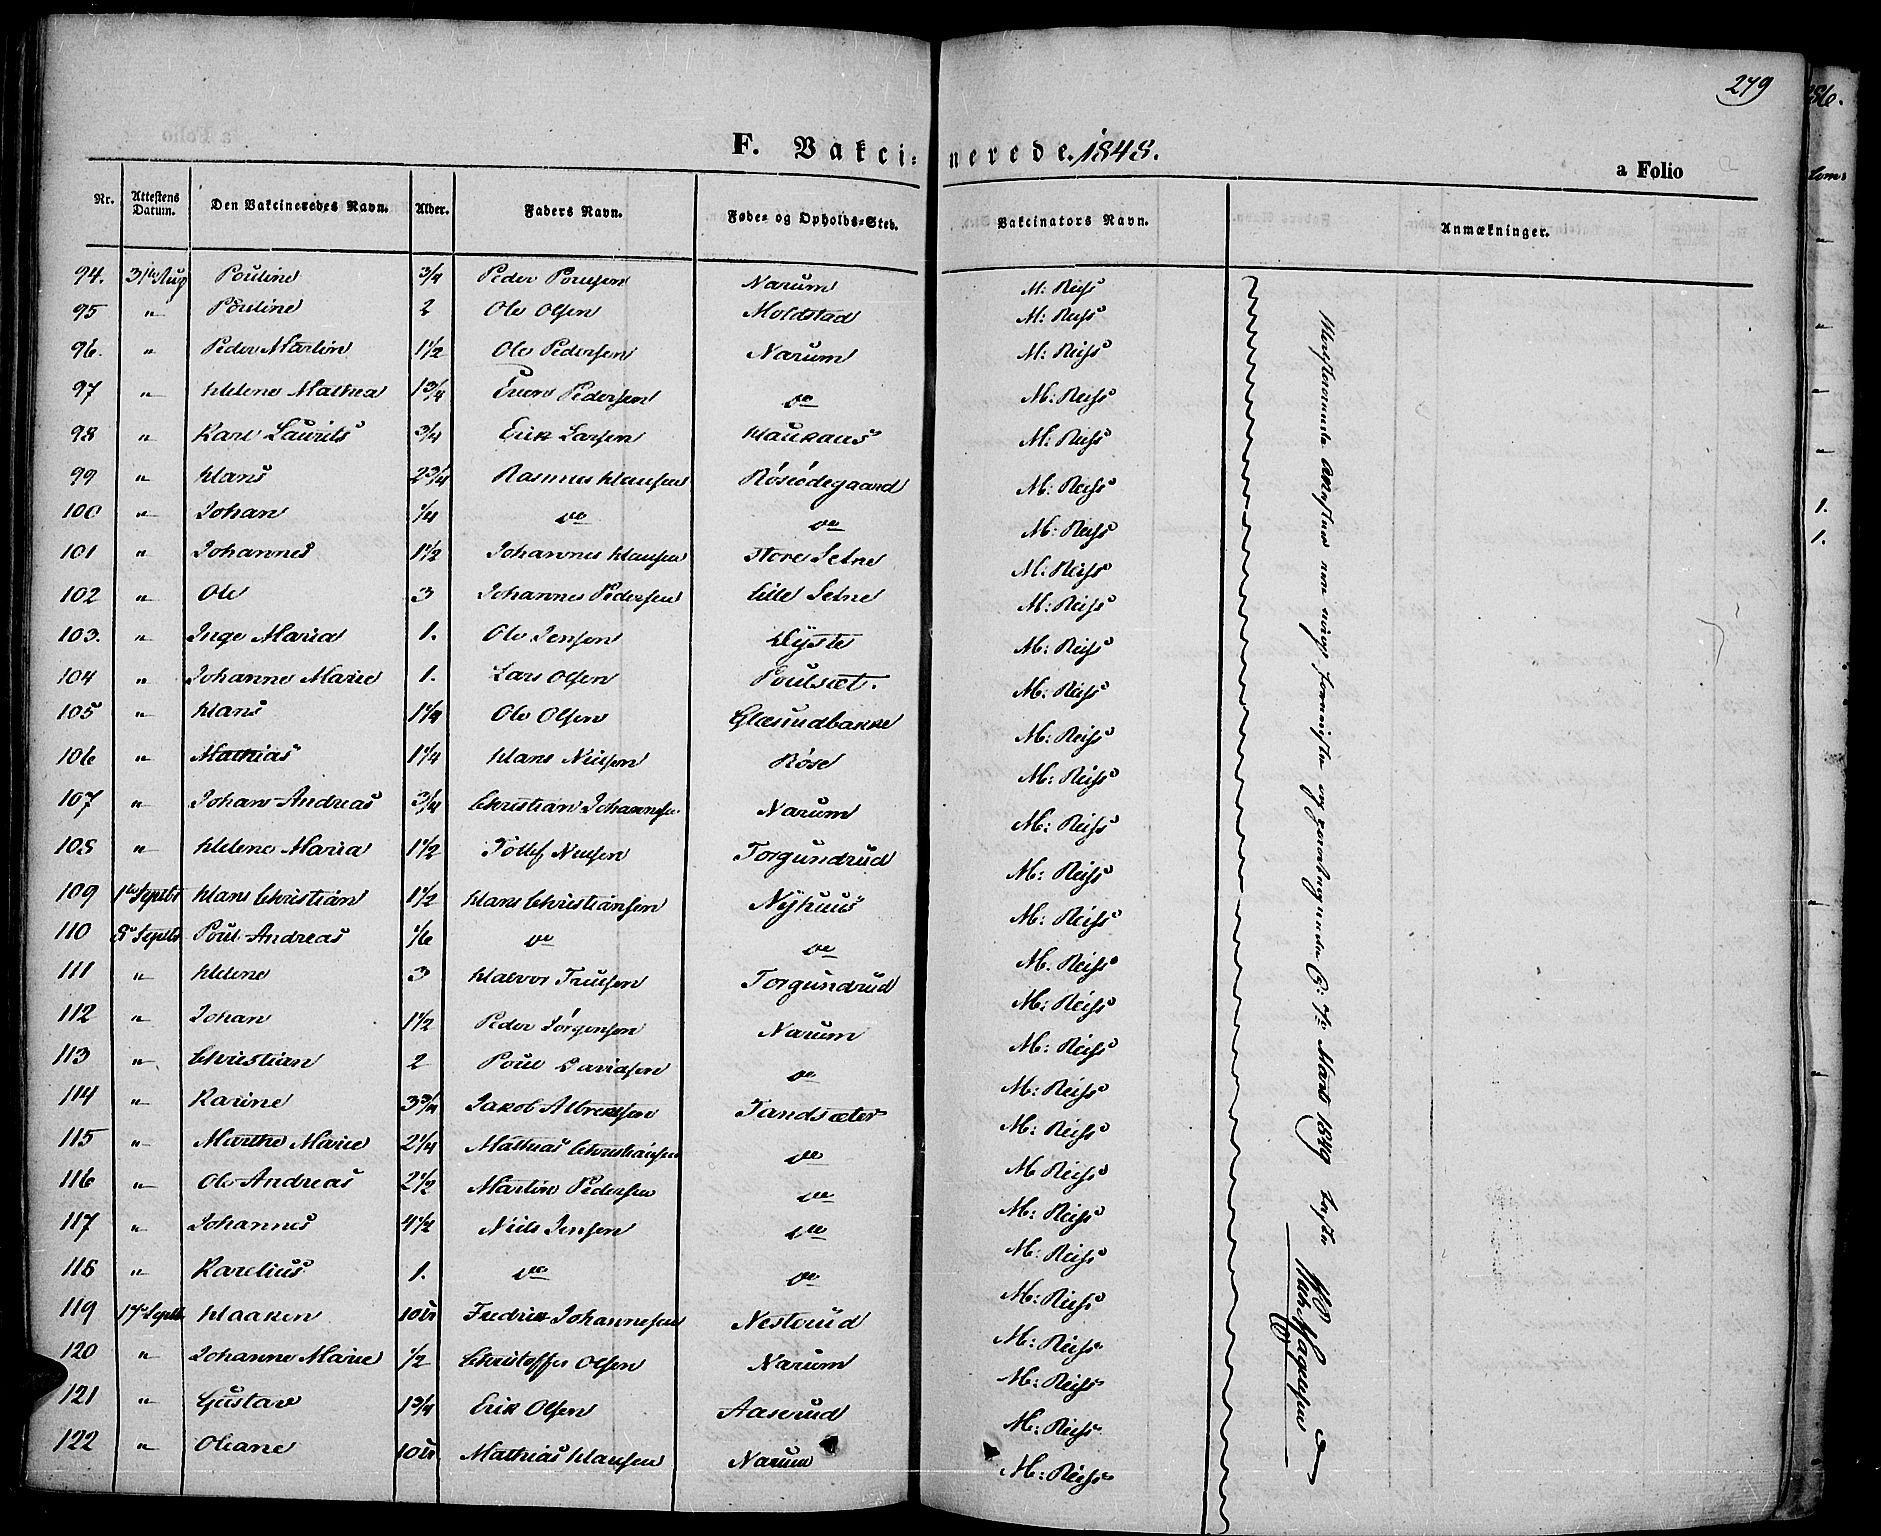 279
F. Vakcinerede. 1848.
a Folio
Nr. Attestens Datum. Den Vakcineredes Navn. Alder. Faders Navn. Føde- og Opholds-Sted. Vakcinators Navn. Anmækninger.
94. 31te Aug Pouline 3/4 Peder Poulsen Narum M: Reiss
95 " Pouline 2 Ole Olsen Moldstad M: Reiss
96. " Peder Martin 1 1/2 Ole Pedersen Narum M: Reiss
97 " Helene Mathea 1 3/4 Even Pedersen do M: Reiss
98 " Karl Laurits 3/4 Erik Larsen Haukaas M: Reiss
99 " Hans 2 3/4 Rasmus Hansen Röseödegaard M: Reiss
100 " Johan 1/4 do do M: Reiss
101 " Johannes 1 1/2 Johannes Hansen Store Setne M: Reiss
102 " Ole 3 Johannes Pedersen Lille Setne M: Reiss
103. " Inge Maria 1. Ole Jensen Høyste M: Reiss
104 " Johanne Marie 1. Lars Olsen Poulsæt. M: Reiss
105 " Hans 1 1/4 Ole Olsen Glæsundbakke M: Reiss
106 " Mathias 1 1/4 Hans Nielsen Röse M: Reiss
107 " Johan Andreas 3/4 Christian Johannesen Narum M: Reiss
108 " Helene Maria 1 1/2 Tollef Nielsen Torgundrud M: Reiss
109 1te Septbr Hans Christian 1 1/2 Hans Christiansen Nÿhuus M: Reiss
110 8de Septbr Poul Andreas 1/6 do do M: Reiss
111 " Helene 3 Halvor Truelsen Torgundrud M: Reiss
112 " Johan 1 1/2 Peder Jörgensen Narum M: Reiss
113 " Christian 2 Poul Davidsen do M: Reiss
114 " Karine 3 3/4 Jakob Albretsen Tandsæter M: Reiss
115 " Marthe Marie 2 1/4 Mathias Christiansen do M: Reiss
116 " Ole Andreas 2 1/2 Martin Pedersen do M Reiss
117 " Johannes 4 1/2 Niels Jensen do M: Reiss
118 " Karelius 1. do do M: Reiss
119 17de Septbr Haaken 10 Fredrik Johannesen Nestrud M: Reiss
120 " Johanne Marie 1/2 Christoffer Olsen Narum M: Reiss
121 " Gustav 1 3/4 Erik Olsen Aaserud M: Reiss
122 " Oleane 10 Mathias Hansen Narum M: Reiss
Marts 1849